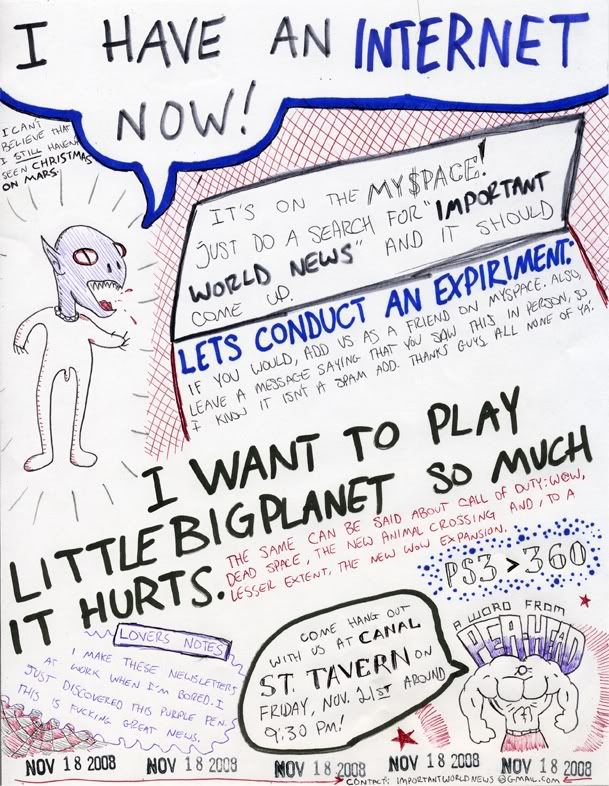 I HAVE AN INTERNET
NOW!
I CAN'T
BELIEVE THAT
I STILL HAVEN'T
SEEN CHRISTMAS
ON MARS.
IT'S ON THE MY$PACE!
JUST DO A SEARCH FOR "IMPORTANT
WORLD NEWS" AND IT SHOULD
COME UP.
LETS CONDUCT AN EXPIRIMENT:
IF YOU WOULD, ADD US AS A FRIEND ON MYSPACE. ALSO,
LEAVE A MESSAGE SAYING THAT YOU SAW THIS IN PERSON, SO
I KNOW IT ISN'T A SPAM ADD. THANKS GUYS. ALL NONE OF YA.
I WANT TO PLAY
LITTLEBIGPLANET SO MUCH
IT HURTS.
THE SAME CAN BE SAID ABOUT CALL OF DUTY: W@W,
DEAD SPACE, THE NEW ANIMAL CROSSING AND, TO A
LESSER EXTENT, THE NEW WOW EXPANSION.
PS3 > 360
LOVERS NOTES
I MAKE THESE NEWSLETTERS
AT WORK WHEN I'M BORED. I
JUST DISCOVERED THIS PURPLE PEN.
THIS IS FUCKING GREAT NEWS.
COME HANG OUT
WITH US AT CANAL
ST. TAVERN ON
FRIDAY, NOV. 21ST AROUND
9:30 PM!
A WORD FROM
PEA-HEAD
NOV 18 2008 NOV 18 2008 NOV 18 2008 NOV 18 2008 NOV 18 2008
CONTACT: IMPORTANTWORLDNEWS@GMAIL.COM